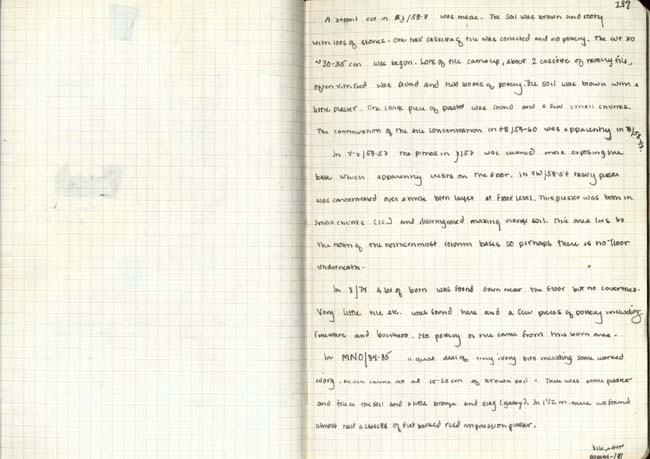 289
A topsoil cut in BJ/58-7 was made. The soil was brown and rooty
with lots of stones. One half cassetta of tile was collected and no pottery. The cut to
~30-35 cm was begun. Lots of tile came up, about 2 cassette of mostly tile,
often vitrified was found and two boxes of pottery. The soil was brown with a
little plaster. One large piece of plaster was found and a few small chunks.
The continuation of the tile concentration in AB/59-60 was apparently in
In X-Y/58-57 the pithos in Y/57 was cleaned more exposing the
base which apparently rests on the floor. In XW/58-57 heavy plaster
was concentrated over a thick burn layer at floor level. This plaster was both in
small chunks and disintegrated making orange soil. This area lies to
the north of the northernmost column bases so perhaps there is no floor
underneath.
In X/74 a lot of burn was found down near the floor but no
Very little tile etc. was found here and a few pieces of pottery including
fineware and bucchero. No pottery or tile came from this burn area.
In MNO/84-85 a great deal of tiny ivory bits including some worked
ivory. Much came at 15-25 cm of brown soil. There was some plaster
and tile in the soil and a little bronze and slag (glassy). In 1 1/2 m. there was found
almost half a cassetta of flat backed reed impression plaster.